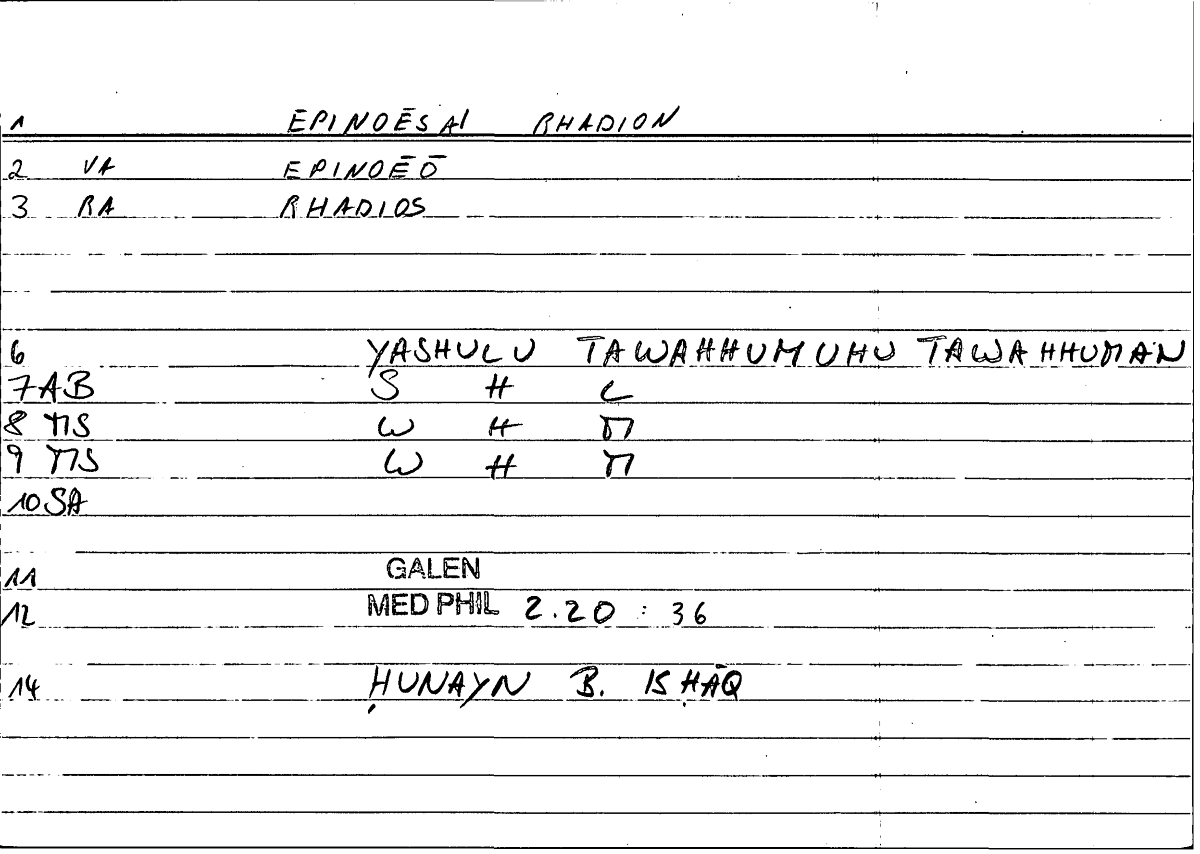 1 EPINOĒSAI RHADION
2 VA EPINOĒŌ
3 RA RHADIOS
6 YASHULU TAWAHHUMUHU TAWAHHUMAN
7 AB S H L
8 MS W H M
9 MS W H M
10 SA
11 GALEN
12 MED PHIL 2.20 : 36
14 ḤUNAYN B. ISḤĀQ